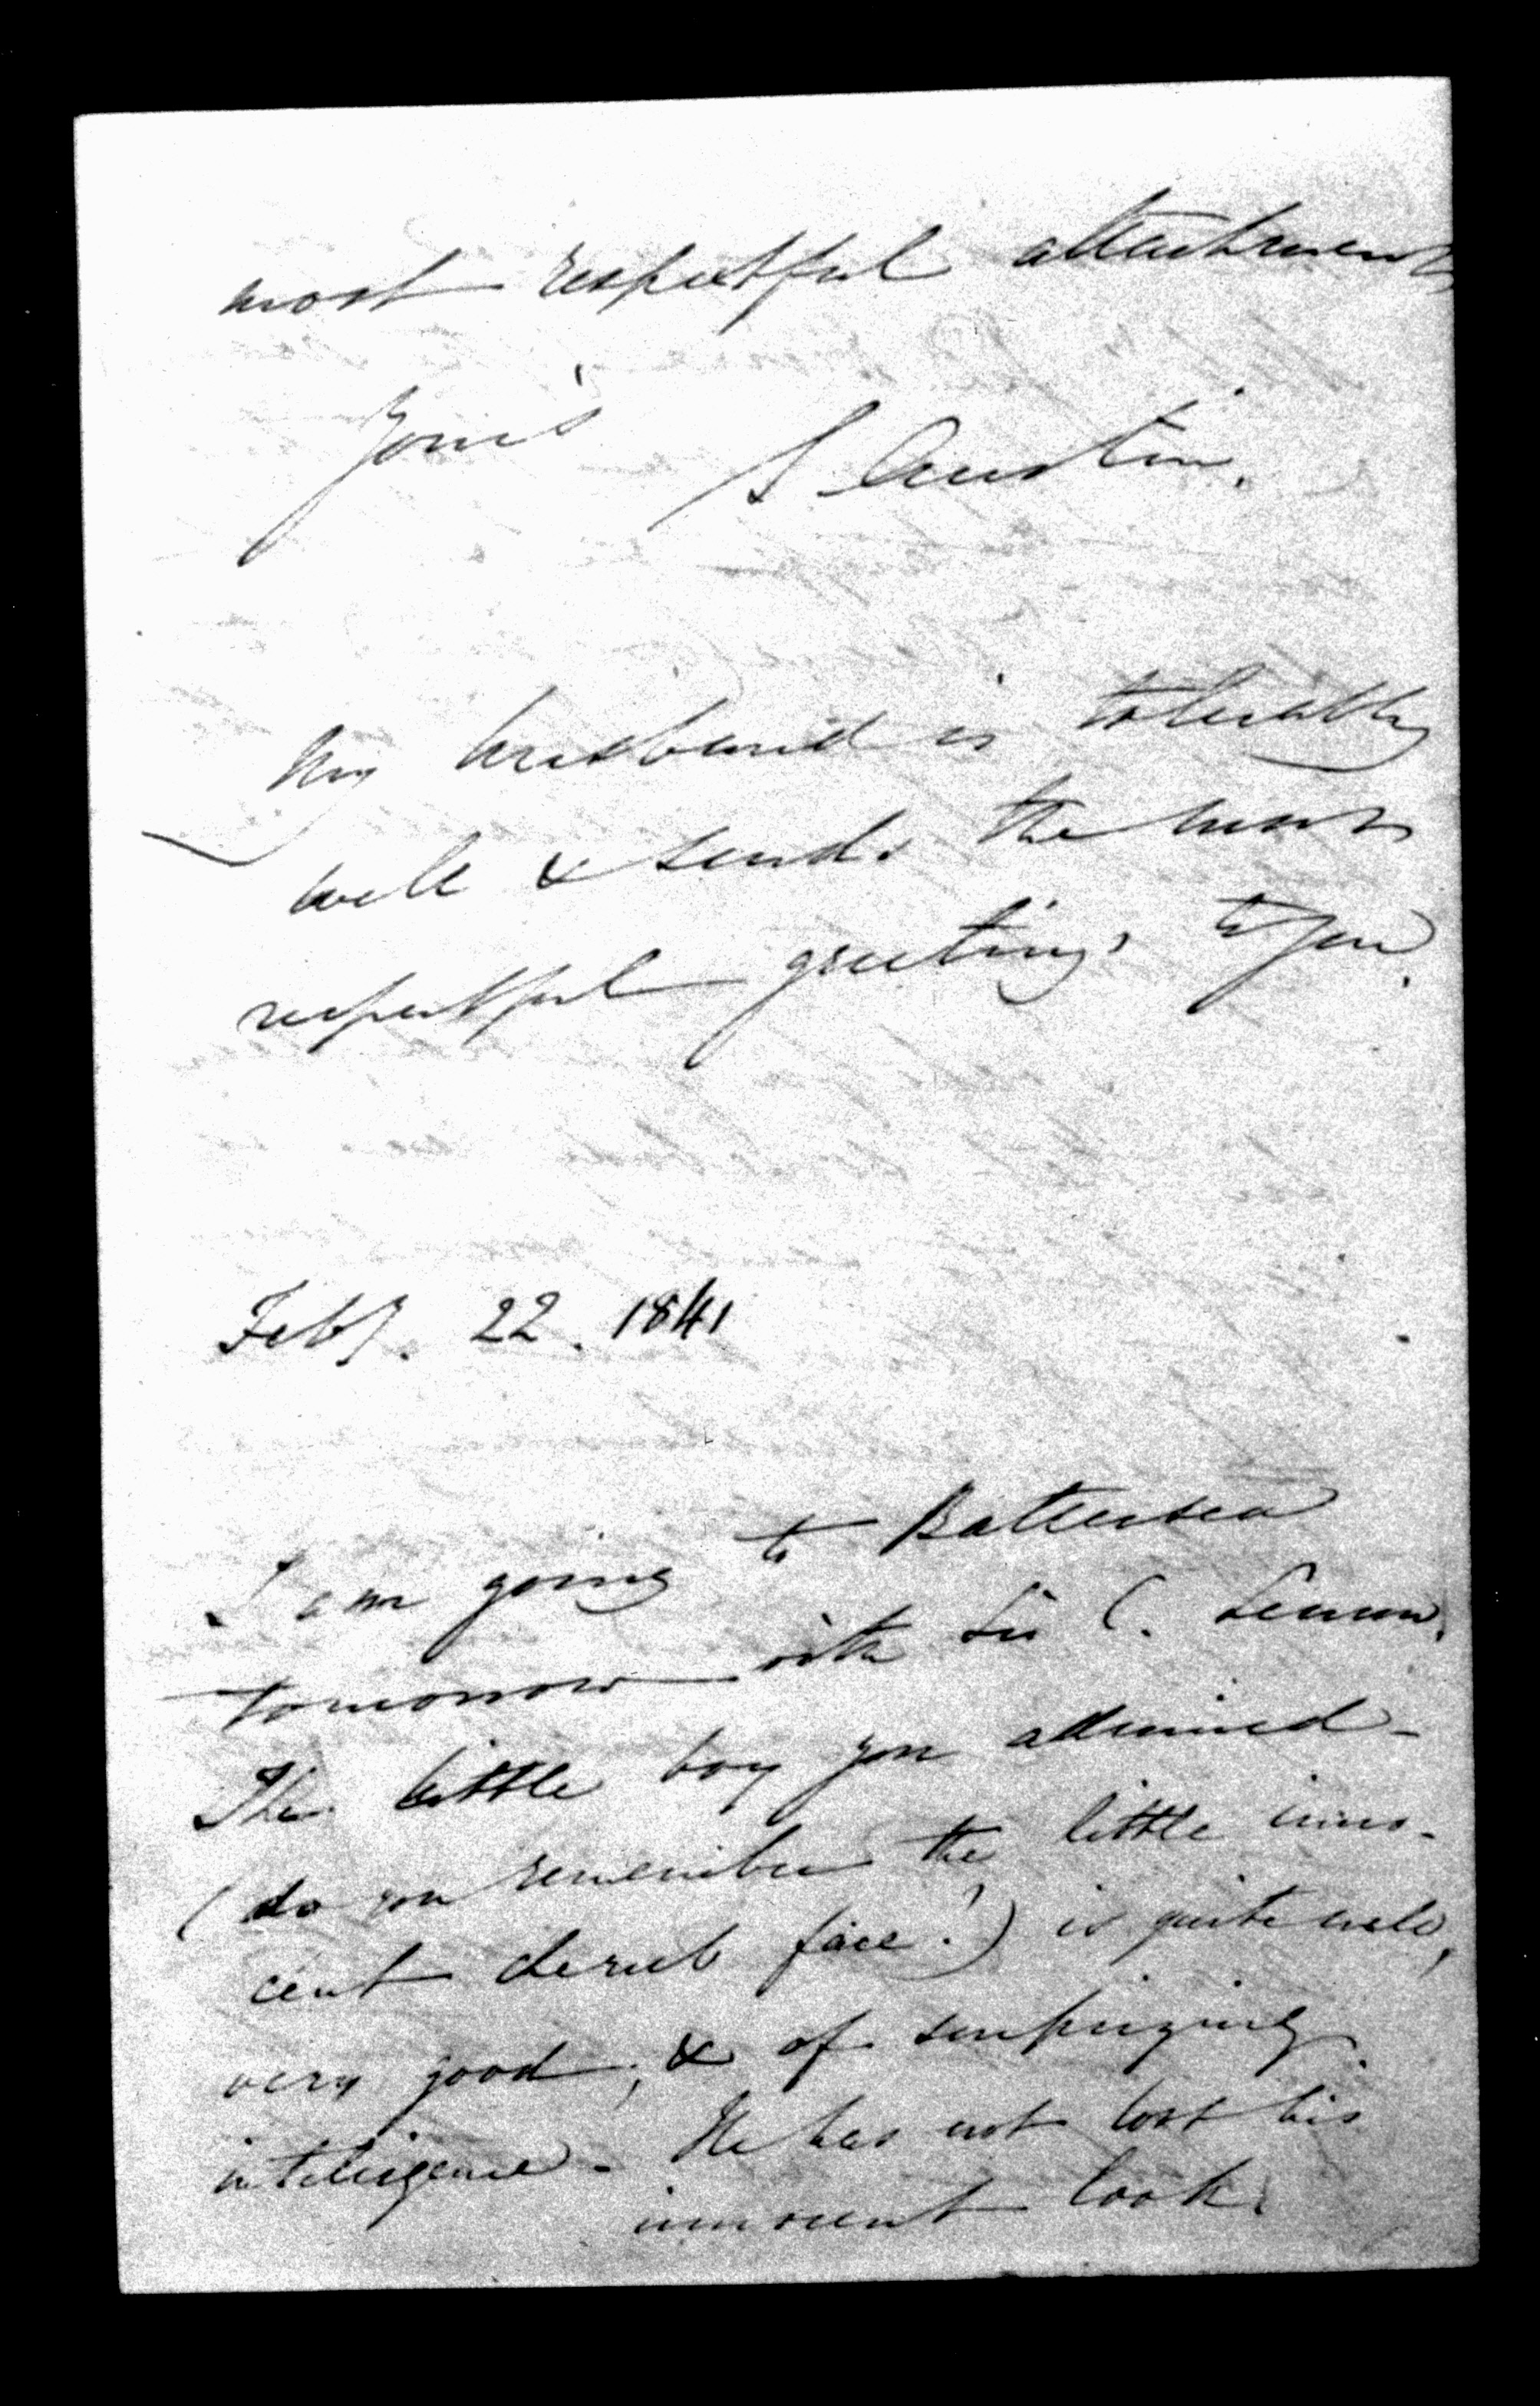 most respectful attachment
Yours
S Austin.
My husband is tolerably
well & sends the most
respectful greetings to you.
Feby. 22. 1841
I am going to Battersea
tomorrow with Sir C. Lemon.
The little boy you admired -
(do you remember the little inno-
cent cherub face?) is quite well,
very good, & of surprizing
intelligence - He has not lost his
innocent look.